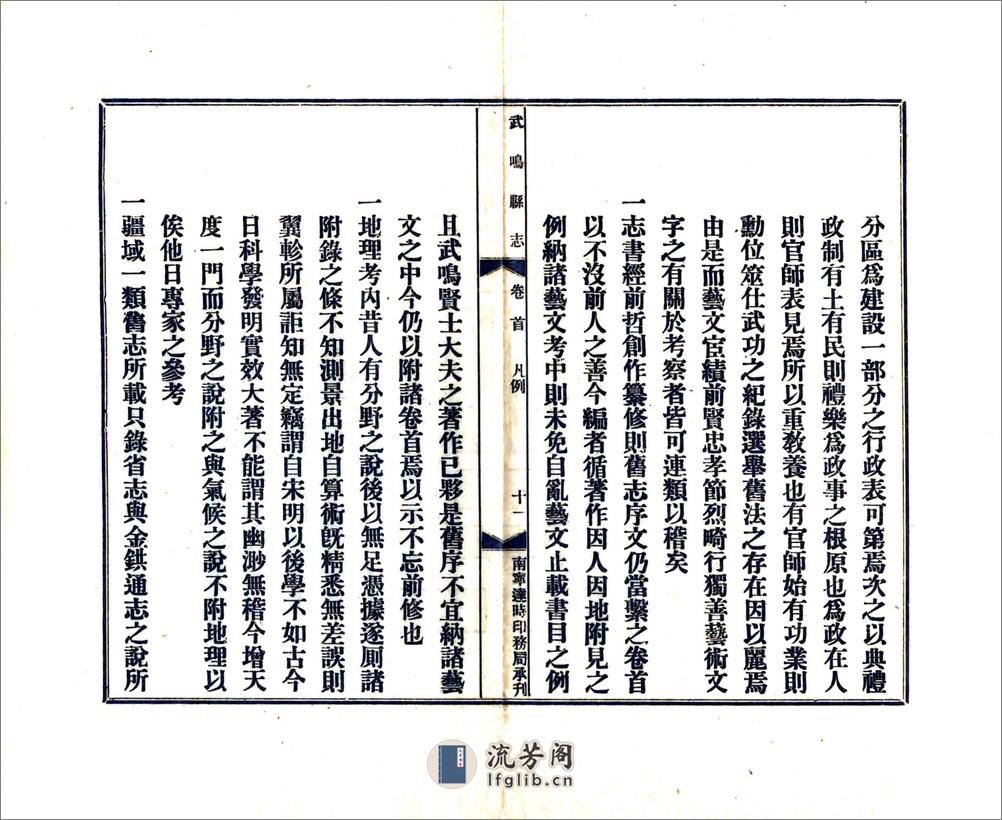 分區爲建設一部分之行政表可第焉次之以典禮
政制有土有民則禮樂爲政事之根原也爲政在人
則官師表見焉所以重敎養也有官師始有功業則
勳位筮仕武功之紀錄選舉舊法之存在因以麗焉
由是而藝文宦績前賢忠孝節烈畸行獨善藝術文
字之有關於考察者皆可連類以稽矣
一志書經前哲創作纂修則舊志序文仍當繫之卷首
以不沒前人之善今編者循著作因人因地附見之
例納諸藝文考中則未免自亂藝文止載書目之例
武鳴縣志
卷首 凡例
十一
南寧達時印務局承刋
且武鳴賢士大夫之著作已夥是舊序不宜納諸藝
文之中今仍以附諸卷首焉以示不忘前修也
一地理考內昔人有分野之說後以無足憑據逐厠諸
附錄之條不知測景出地自算術旣精悉無差誤則
翼軫所屬詎知無定竊謂自宋明以後學不如古今
日科學發明實效大著不能謂其幽渺無稽今增天
度一門而分野之說附之與氣候之說不附地理以
俟他日專家之參考
一疆域一類舊志所載只錄省志與金鉷通志之說所
流芳阁
lfglib.cn